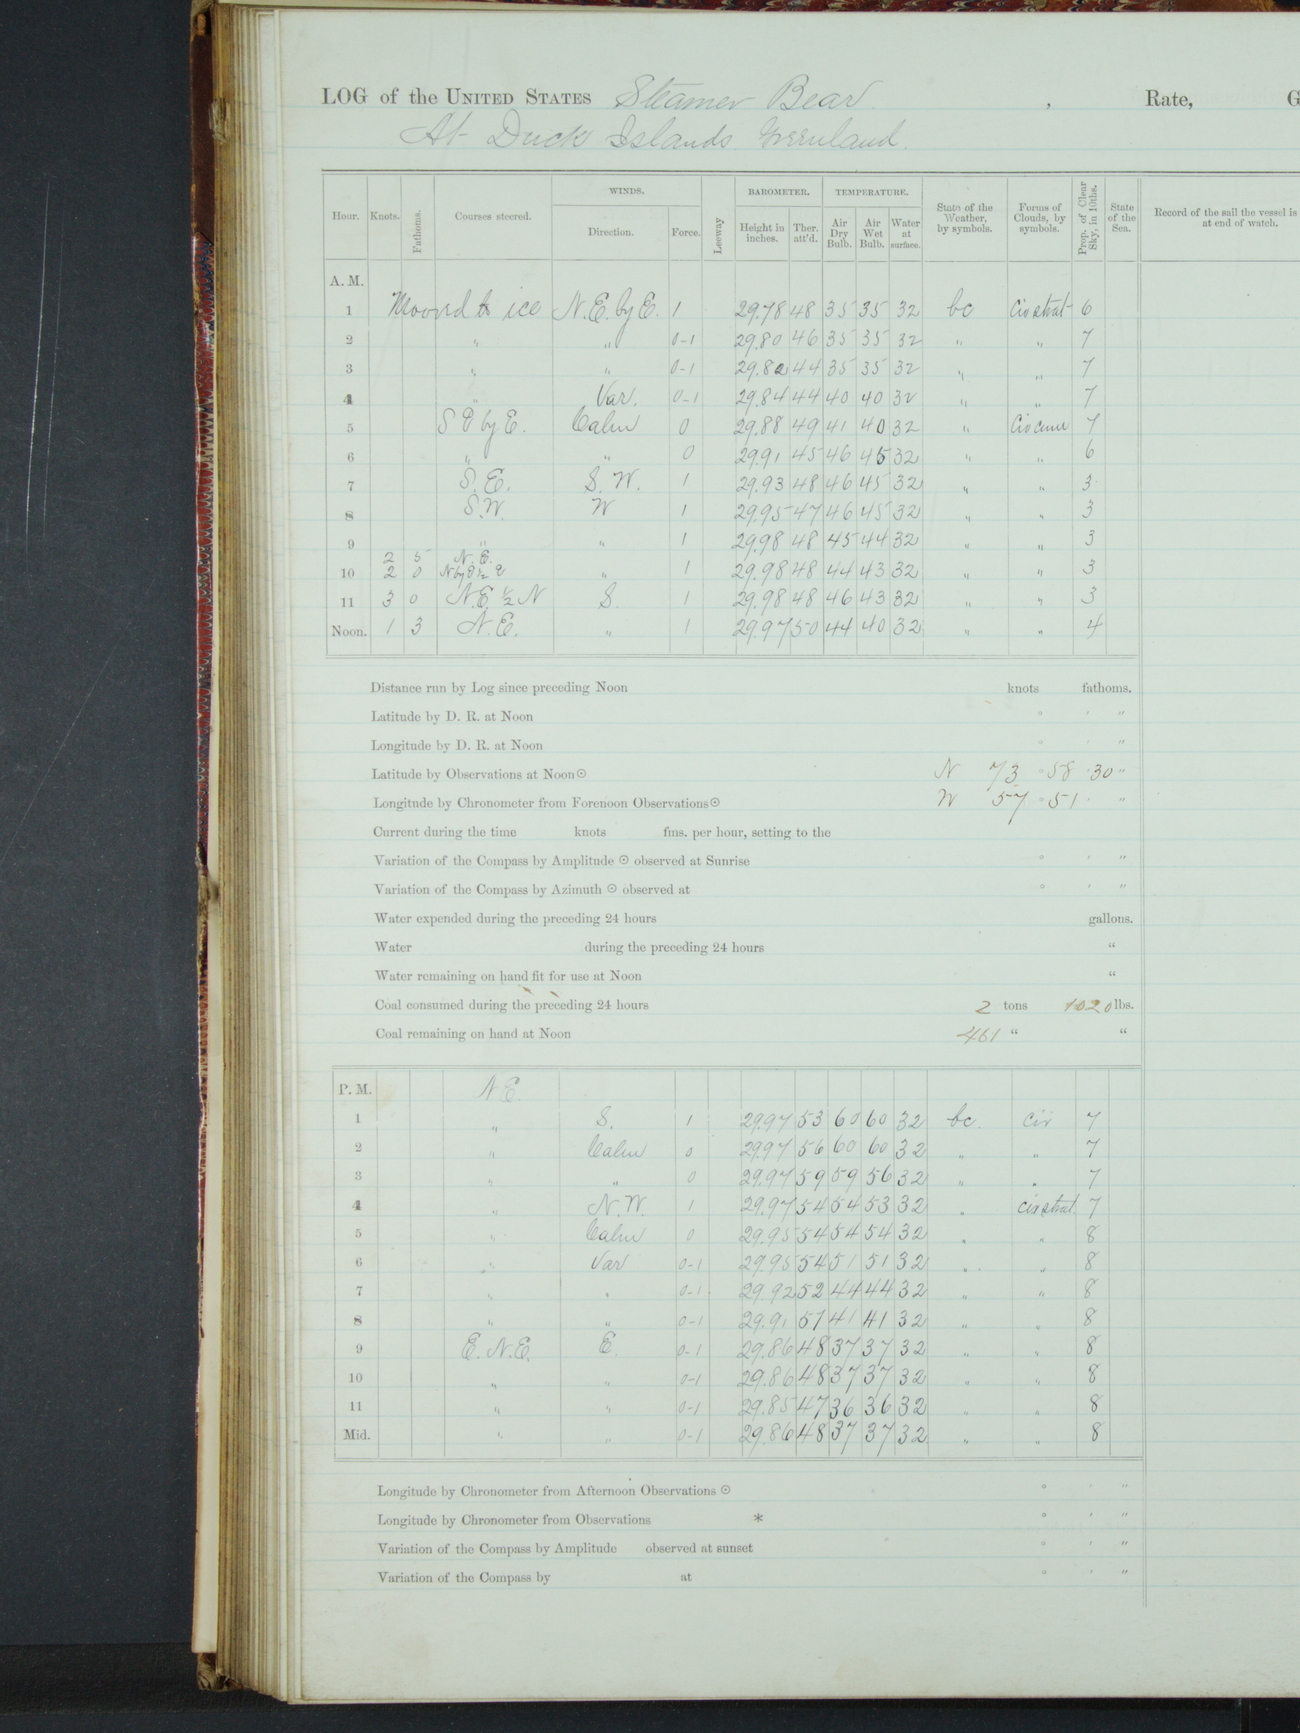 LOG of the UNITED STATES Steamer Bear , Rate, G
At Duck Islands Greenland.
Hour. Knots. Fathoms. Courses steered. WINDS. Direction. Force. Leeway BAROMETER. Height in inches. Ther. att'd. TEMPERATURE. Air Dry Bulb. Air Wet Bulb. Water at surface. State of the Weather, by symbols. Forms of Clouds, by symbols. Prop. of Clear Sky, in 10ths. State of the Sea. Record of the sail the vessel is at end of watch.
A. M.
1 Moored to ice N.E. by E. 1 29.78 48 35 35 32 bc Cir strat 6
2 " " 0-1 29.80 46 35 35 32 " " 7
3 " " 0-1 29.82 44 35 35 32 " " 7
4 " Var. 0-1 29.84 44 40 40 32 " " 7
5 S E by E. Calm 0 29.88 49 41 40 32 " Cir cum 7
6 " " 0 29.91 45 46 45 32 " " 6
7 S.E. S.W. 1 29.93 48 46 45 32 " " 3
8 S.W. W 1 29.95 47 46 45 32 " " 3
9 " " 1 29.98 48 45 44 32 " " 3
2 5 N.E.
10 2 0 N by E ½ E " 1 29.98 48 44 43 32 " " 3
11 3 0 N.E. ½ N S. 1 29.98 48 46 43 32 " " 3
Noon. 1 3 N.E. " 1 29.97 50 44 40 32 " " 4
Distance run by Log since preceding Noon knots fathoms.
Latitude by D. R. at Noon ° ' "
Longitude by D. R. at Noon ° ' "
Latitude by Observations at Noon☉ N 73 ° 58 ' 30 "
Longitude by Chronometer from Forenoon Observations☉ W 57 ° 51 ' "
Current during the time knots fms. per hour, setting to the
Variation of the Compass by Amplitude ☉ observed at Sunrise ° ' "
Variation of the Compass by Azimuth ☉ observed at ° ' "
Water expended during the preceding 24 hours gallons.
Water during the preceding 24 hours “
Water remaining on hand fit for use at Noon “
Coal consumed during the preceding 24 hours 2 tons 1020 lbs.
Coal remaining on hand at Noon 461 “ “
P. M. N.E.
1 " S. 1 29.97 53 60 60 32 bc. cir 7
2 " Calm 0 29.97 56 60 60 32 " " 7
3 " " 0 29.97 59 59 56 32 " " 7
4 " N.W. 1 29.97 54 54 53 32 " cir strat. 7
5 " Calm 0 29.95 54 54 54 32 " " 8
6 " Var 0-1 29.95 54 51 51 32 " " 8
7 " " 0-1 29.92 52 44 44 32 " " 8
8 " " 0-1 29.91 51 41 41 32 " " 8
9 E. N.E. E. 0-1 29.86 48 37 37 32 " " 8
10 " " 0-1 29.86 48 37 37 32 " " 8
11 " " 0-1 29.85 47 36 36 32 " " 8
Mid. " " 0-1 29.86 48 37 37 32 " " 8
Longitude by Chronometer from Afternoon Observations ☉ ° ' "
Longitude by Chronometer from Observations * ° ' "
Variation of the Compass by Amplitude observed at sunset ° ' "
Variation of the Compass by at ° ' "